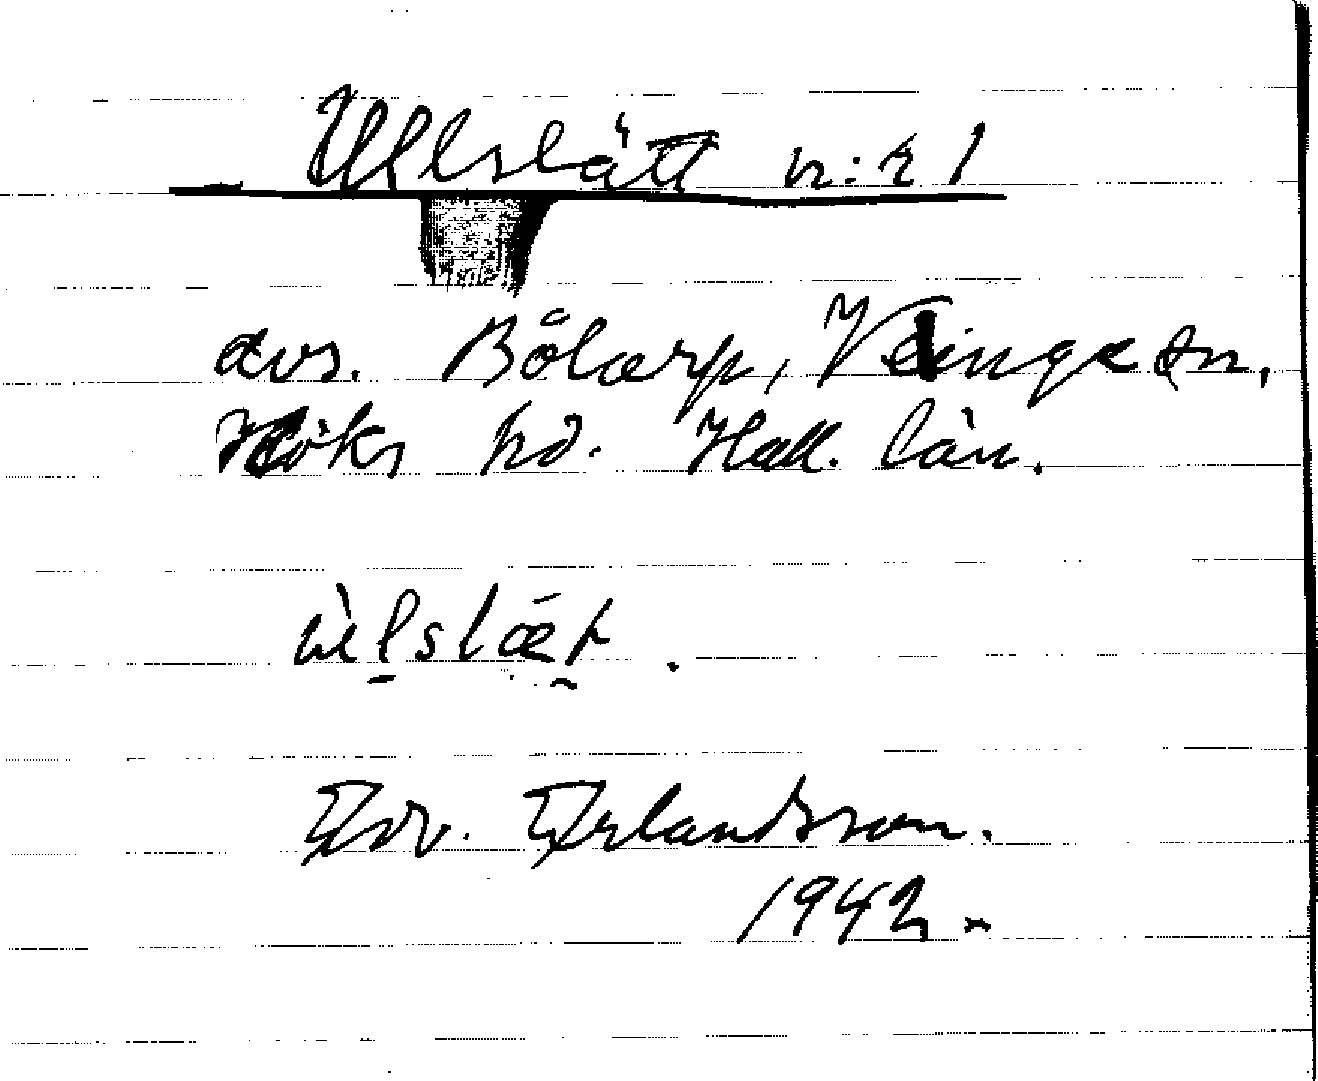 Ullslätt n:r 1
avs. Bölarp, Veinge sn,
Höks hd. Hall. län.
ùlslæt.
Edv. Erlandsson.
1942.